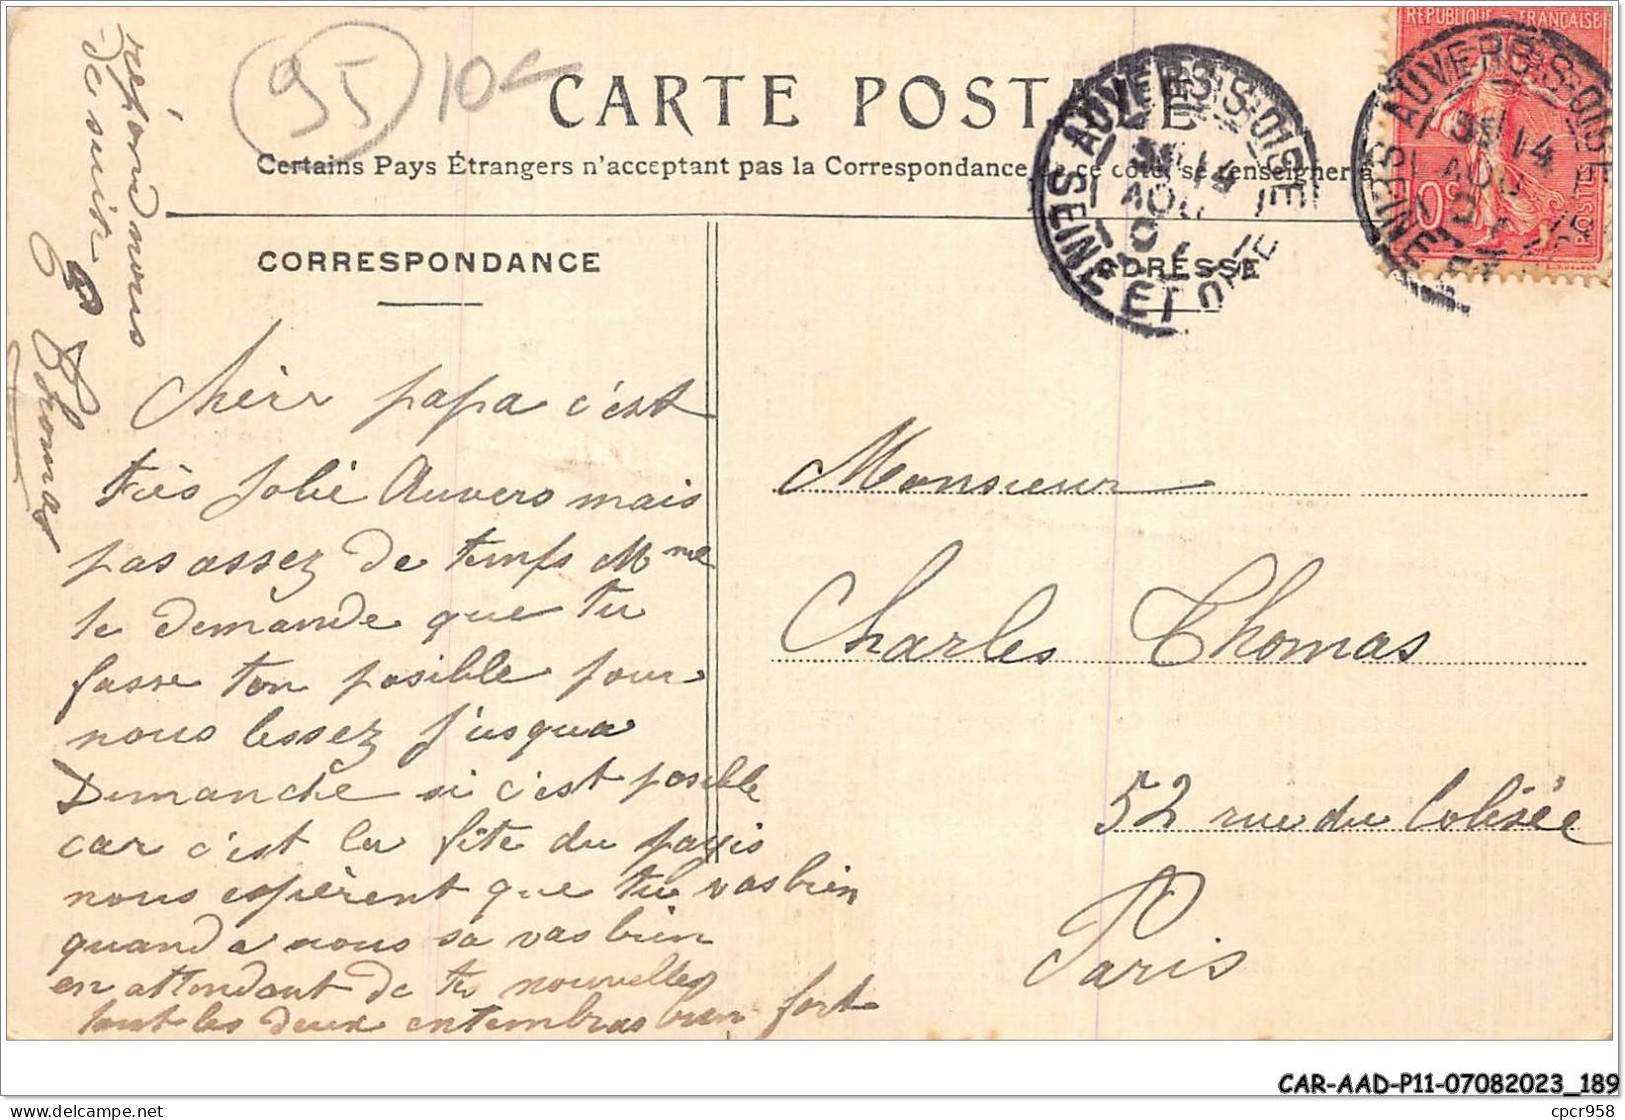 95 10
CARTE POSTALE
Certains Pays Étrangers n'acceptant pas la Correspondance de ce côté, se renseigner à
CORRESPONDANCE
ADRESSE
AUVERS-S-OISE
14
AOU
SEINE ET OISE
REPUBLIQUE FRANCAISE
10c
POSTES
AUVERS-S-OISE
14
AOU
SEINE ET
répond nous
de suite
Thomas
Chèir papa c'est
très jolie Auvers mais
pas assez de temps Mme
te demande que tu
fasse ton posible pour
nous lessez j'usqua
Dimanche si c'est posible
car c'est la fête du payis
nous espèrent que tu vas bien
quand a nous sa vas bien
en attendant de tes nouvelles
tout les deux entembras bien fort
Monsieur
Charles Thomas
52 rue du Colisée
Paris
CAR-AAD-P11-07082023_189
delcampe.net
cpcr958